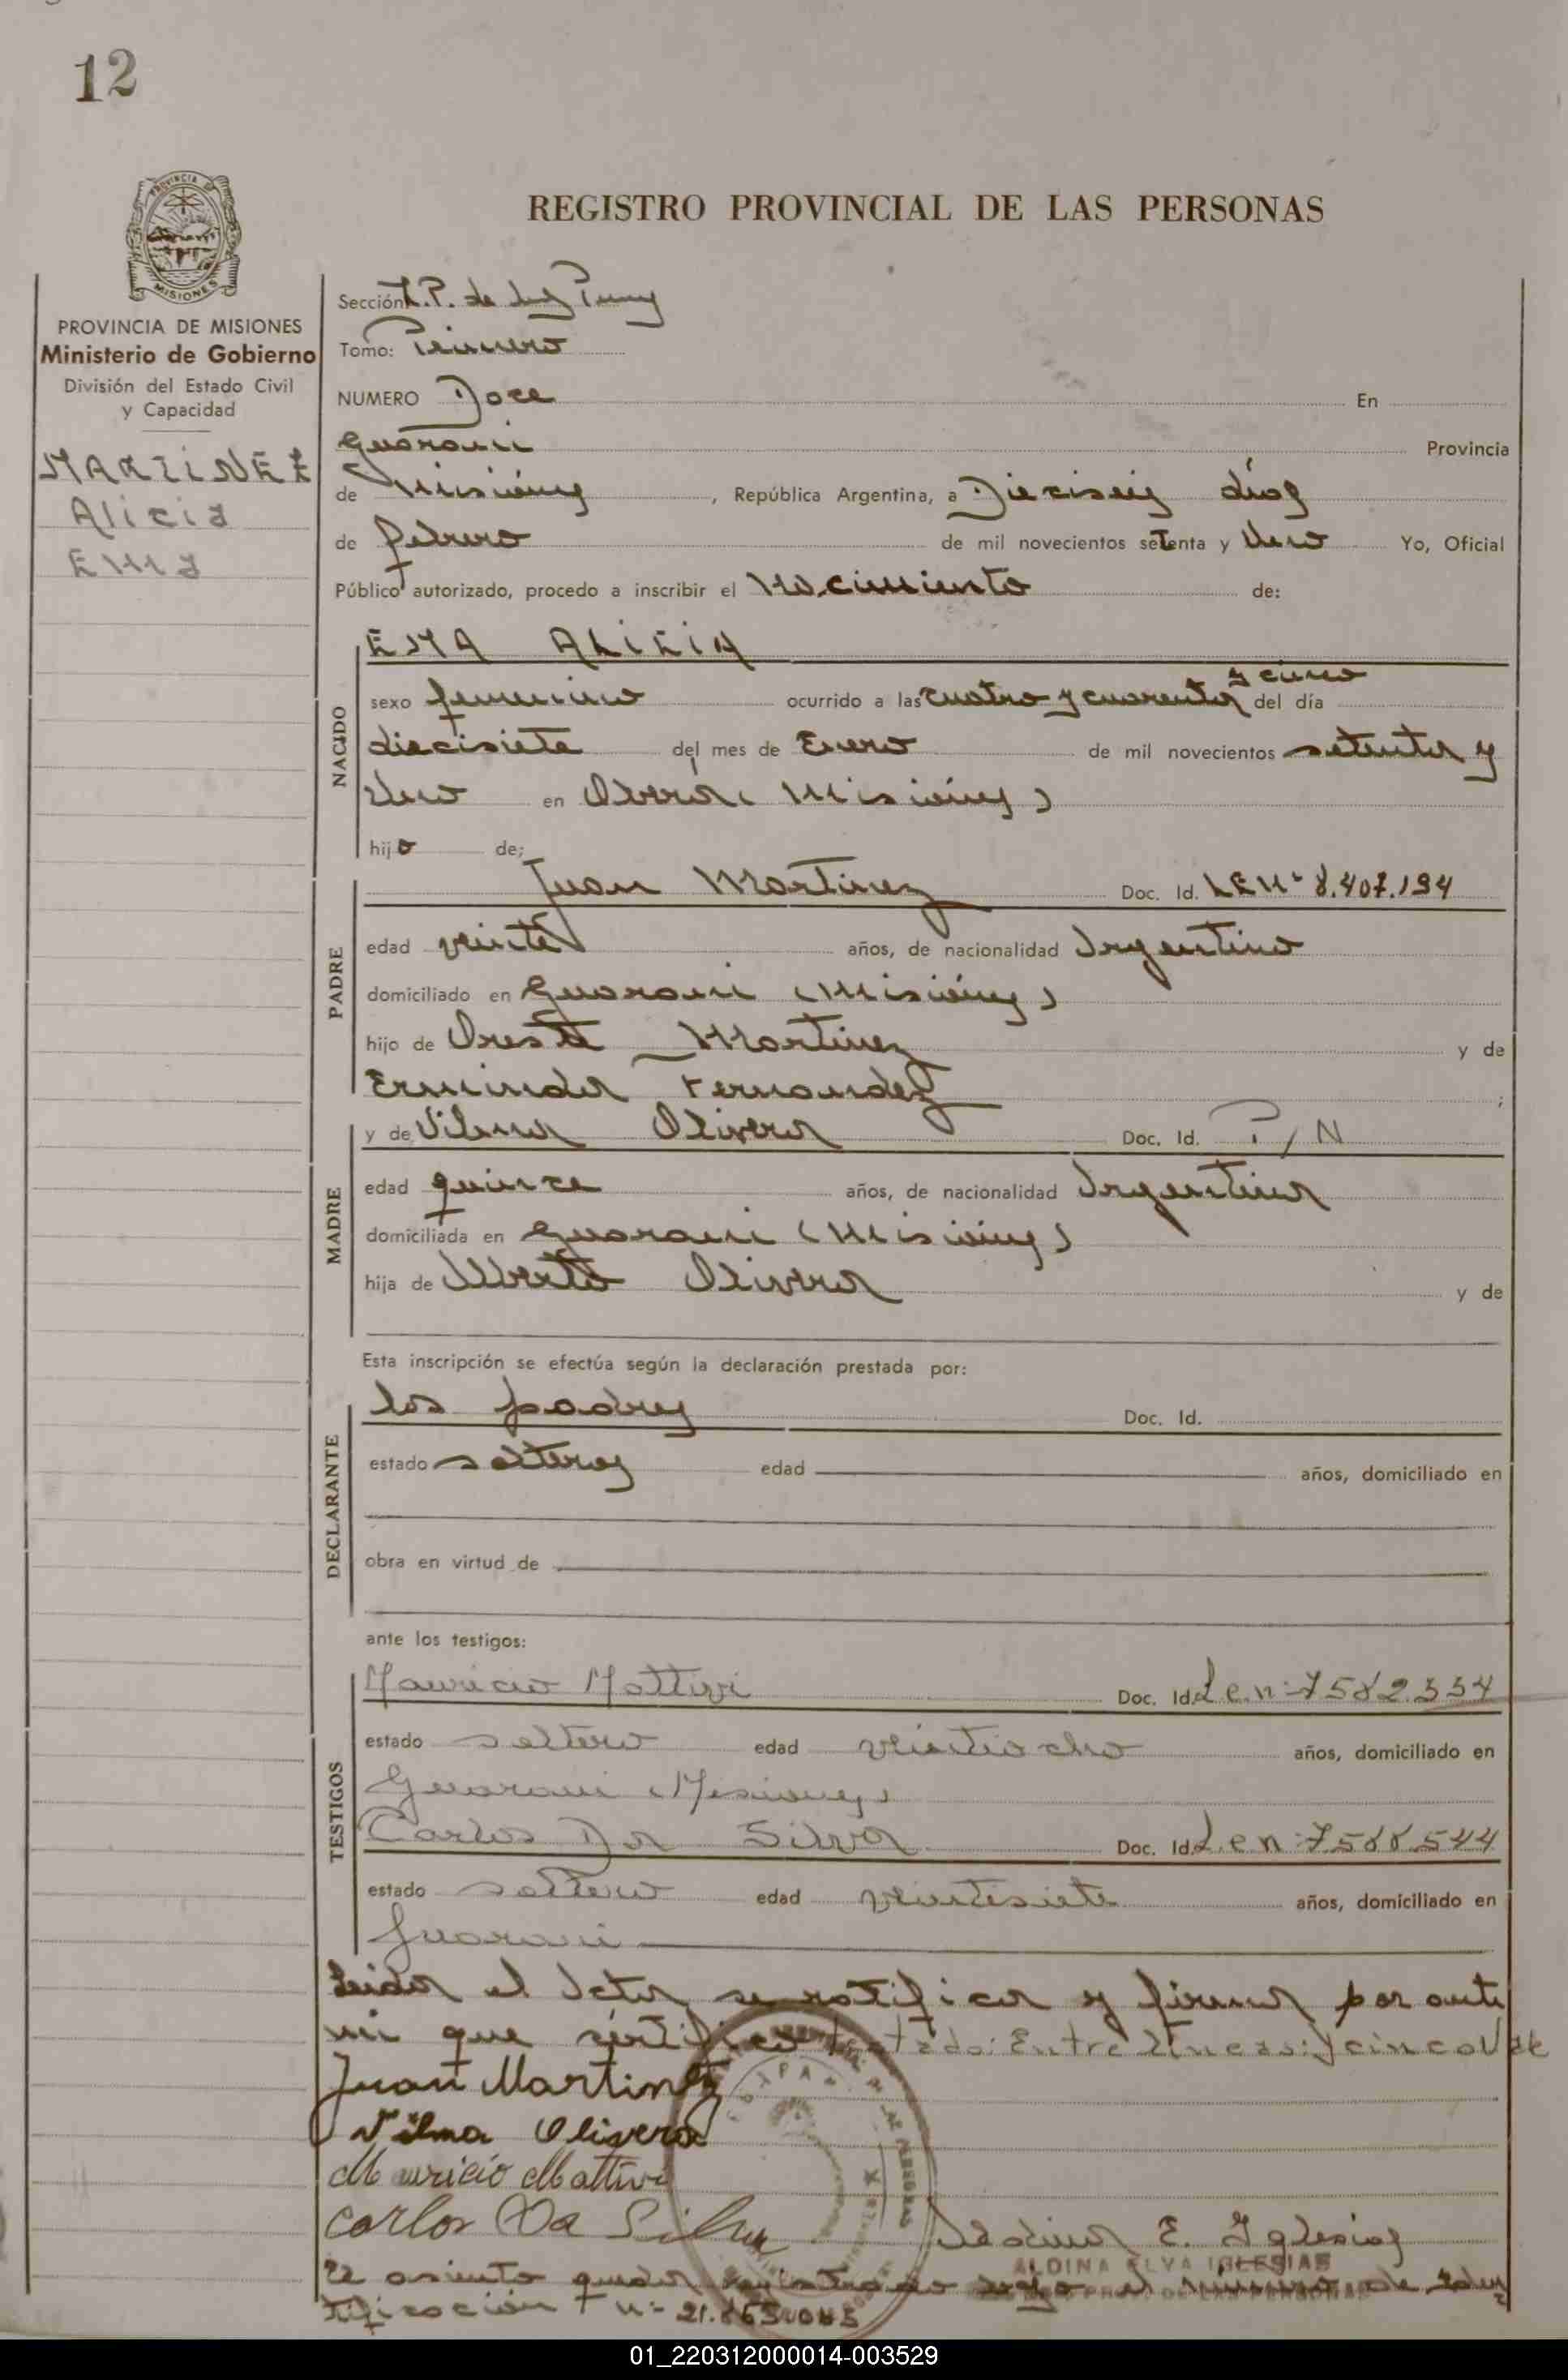 12
REGISTRO PROVINCIAL DE LAS PERSONAS
PROVINCIA DE MISIONES
PROVINCIA DE MISIONES
Ministerio de Gobierno
División del Estado Civil
y Capacidad
MARTINEZ
Alicia
EMA
Sección R.P. de las
Tomo: Primero
NUMERO Doce En
Guarani Provincia
de Misiones, República Argentina, a Dieciseis días
de febrero de mil novecientos setenta y Uno Yo, Oficial
Público autorizado, procedo a inscribir el Nacimiento de:
NACIDO
EMA ALICIA
y cinco
sexo femenino ocurrido a las cuatro y cuarenta del día
diecisiete del mes de Enero de mil novecientos setenta y
Uno en Oberá (Misiones)
hija de;
PADRE
Juan Martinez Doc. Id. LENº 8.407.194
edad veinte años, de nacionalidad Argentino
domiciliado en Guarani (Misiones)
hijo de Oreste Martinez y de
Erminda Fernandez ;
MADRE
y de Vilma Olivera Doc. Id. P/N
edad quince años, de nacionalidad Argentina
domiciliada en Guarani (Misiones)
hija de Alberto Olivera y de
Esta inscripción se efectúa según la declaración prestada por:
DECLARANTE
los padres Doc. Id.
estado solteros edad años, domiciliado en
obra en virtud de
ante los testigos:
TESTIGOS
Mauricio Mattivi Doc. Id. L.e.nº 7582.334
estado soltero edad veintiocho años, domiciliado en
Guarani (Misiones)
Carlos Da Silva Doc. Id. L.e.nº 7588.544
estado soltero edad veintisiete años, domiciliado en
Guarani
Leida el Acta se ratifican y firman por ante
mi que sertifico testado: Entre líneas: y cinco Vale
Juan Martinez
Vilma Olivera
Mauricio Mattivi
Carlos Da Silva
Aldina E. Iglesias
ALDINA ELVA IGLESIAS
El asiento queda registrado bajo el número de Iden
tificación nº 21.863.083
01_220312000014-003529